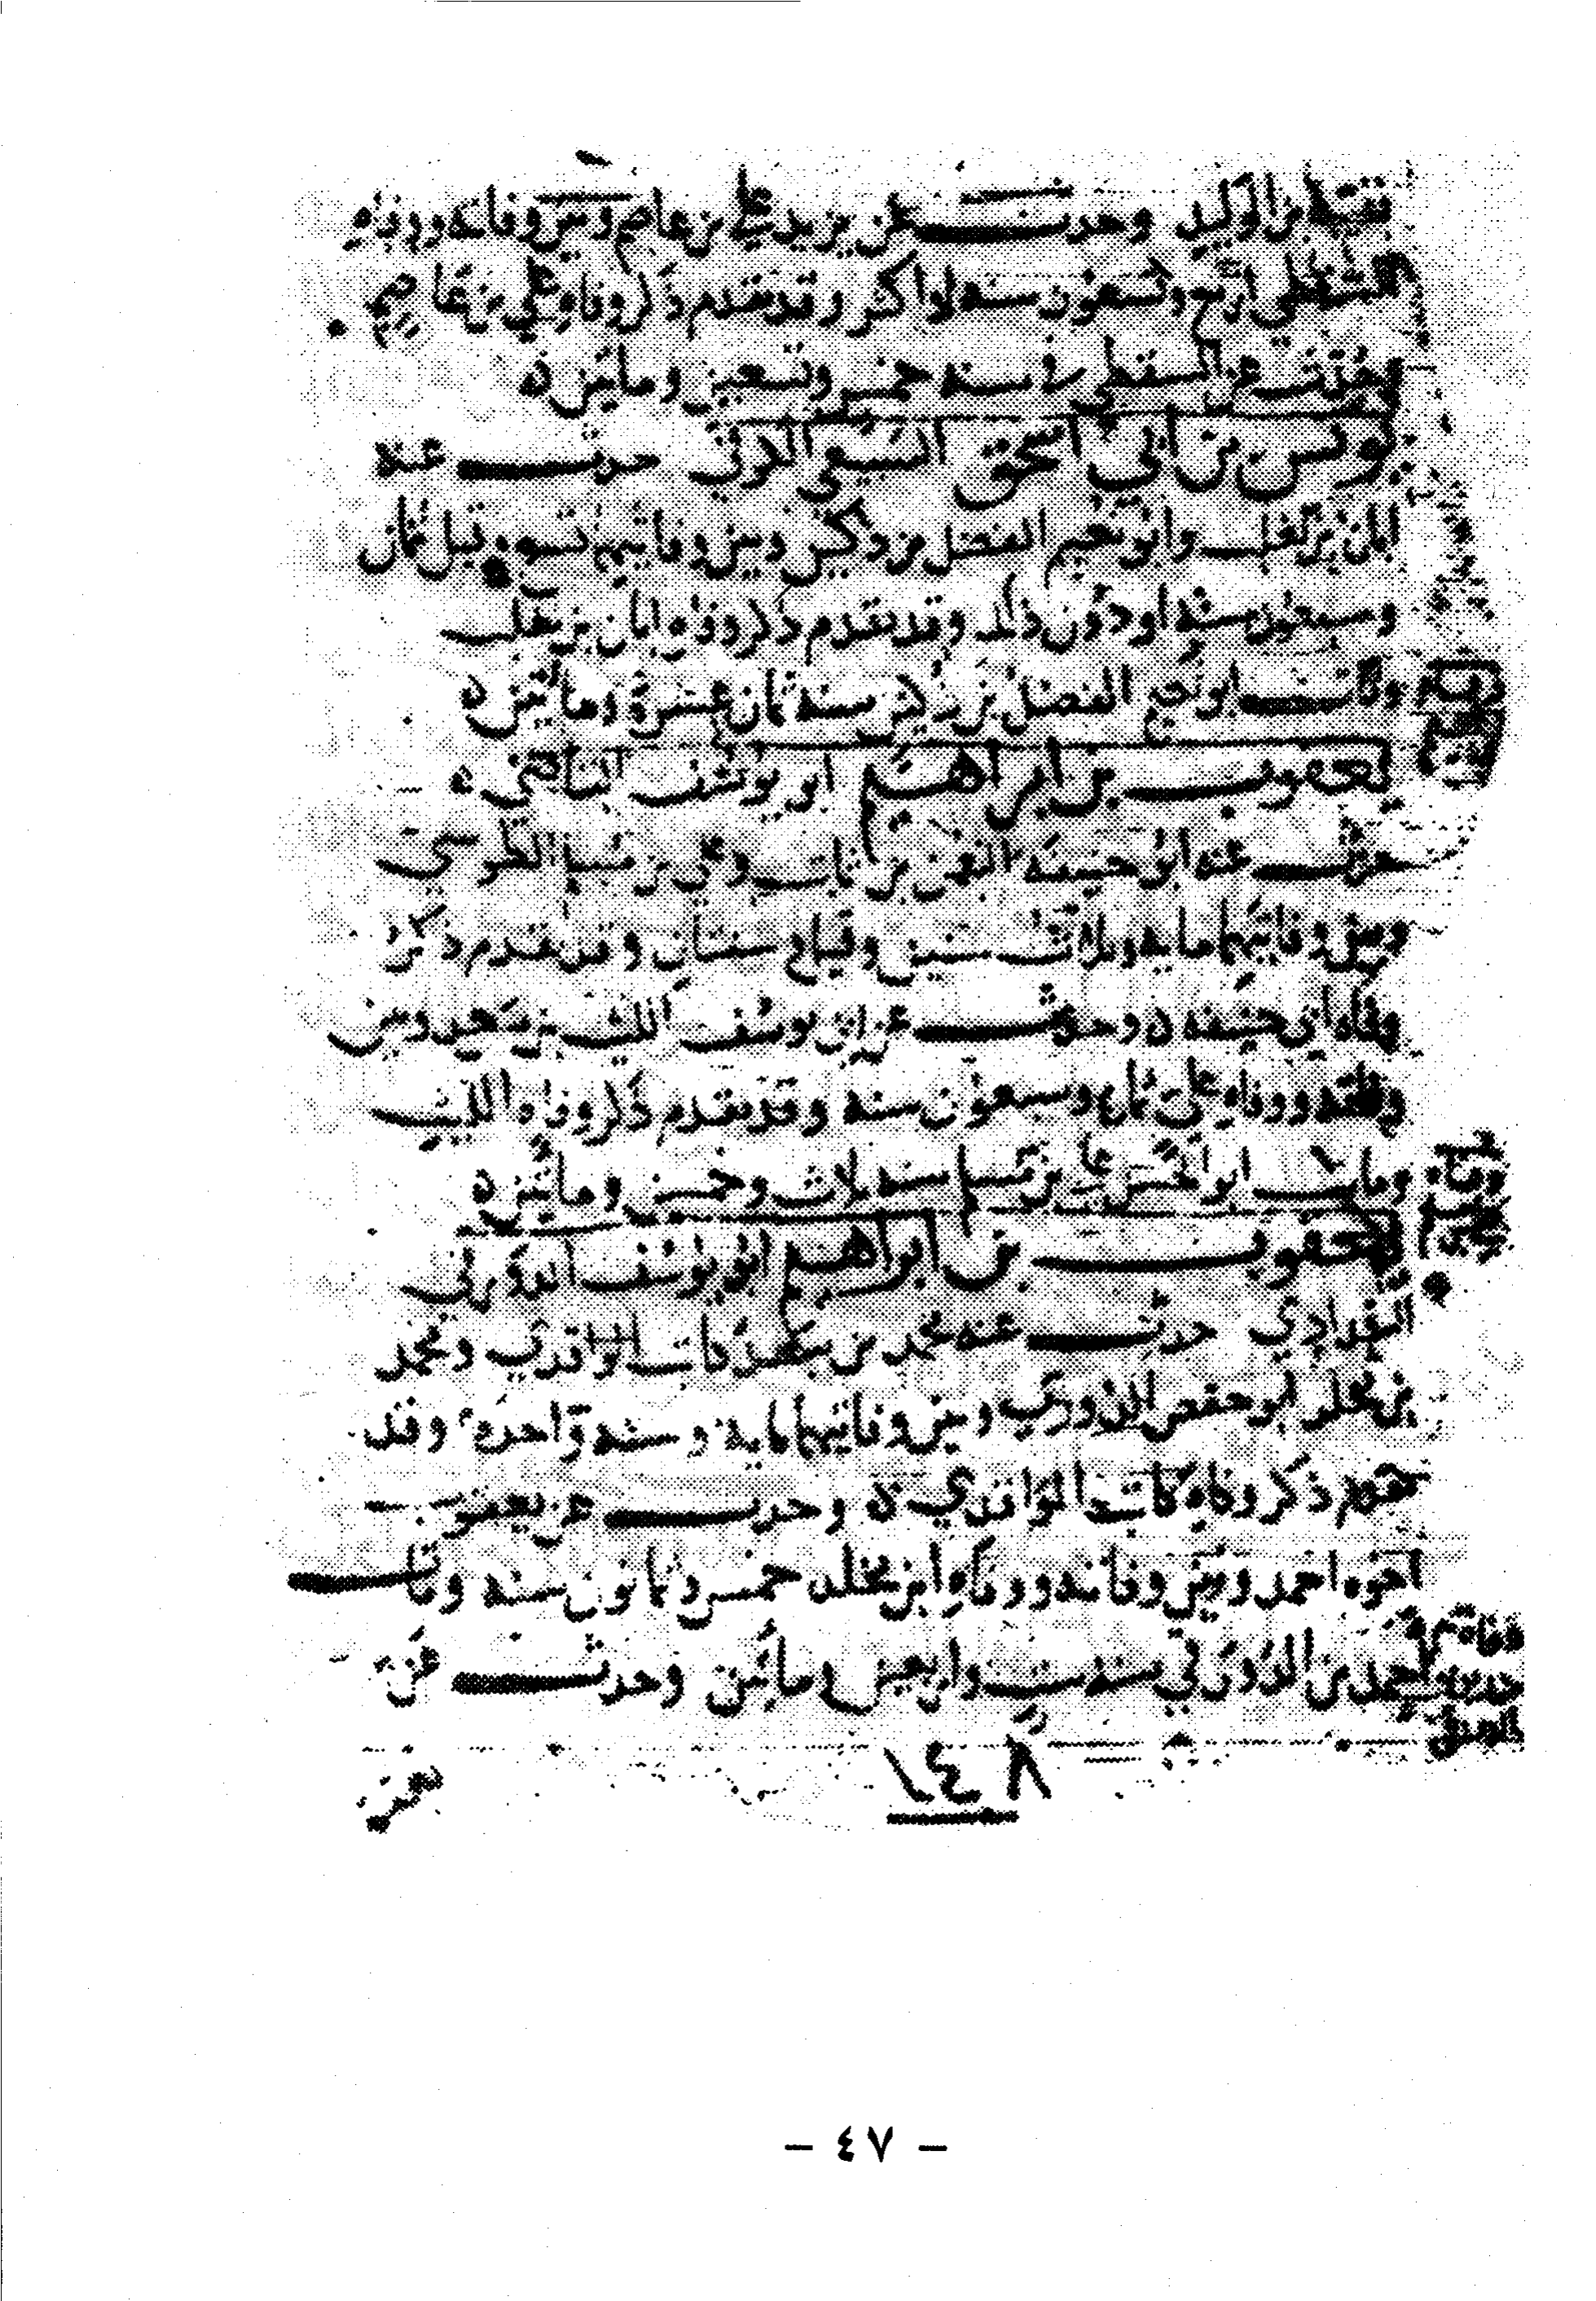 بقية بن الوليد وحدث عن يزيد علي بن عاصم وبين وفاته ووفاة
السقطي اربع وتسعون سنة او اكثر وقد تقدم ذكر وفاة علي بن عاصم
وحدث عن السقطي سنة خمس وتسعين ومائتين
يونس بن ابي اسحق السبيعي الكوفي حدث عنه
ابان بن تغلب وابو نعيم الفضل بن دكين وبين وفاتيهما تسع وقيل ثمان
وسبعون سنة او دون ذلك وقد تقدم ذكر وفاة ابان بن تغلب
ومات ابو نعيم الفضل بن دكين سنة ثمان عشرة ومائتين
يعقوب بن ابراهيم ابو يوسف القاضي
حدث عنه ابو حنيفة النعمن بن ثابت وعلي بن مسلم الطوسي
وبين وفاتيهما مايه وثلاث سنين وقيل وسنتان وقد تقدم ذكر
وفاة ابي حنيفة وحدث عن ابي يوسف الليث بن سعد وبين
وفاته ووفاة علي ثمان وسبعون سنة وقد تقدم ذكر وفاة الليث
ومات ابو الحسن علي بن مسلم سنة ثلاث وخمسين ومائتين
يعقوب بن ابراهيم ابو يوسف الدورقي
البغدادي حدث عنه محمد بن سعد كاتب الواقدي ومحمد
بن مخلد ابو حفص الدوري وبين وفاتيهما مايه وسنة واحدة وقد
تقدم ذكر وفاة كاتب الواقدي وحدث عن يعقوب
اخوه احمد وبين وفاته ووفاة ابن مخلد خمس وثمانون سنة ومات
احمد بن الدورقي سنة ست واربعين ومائتين وحدث عن
١٤٨
- ٤٧ -